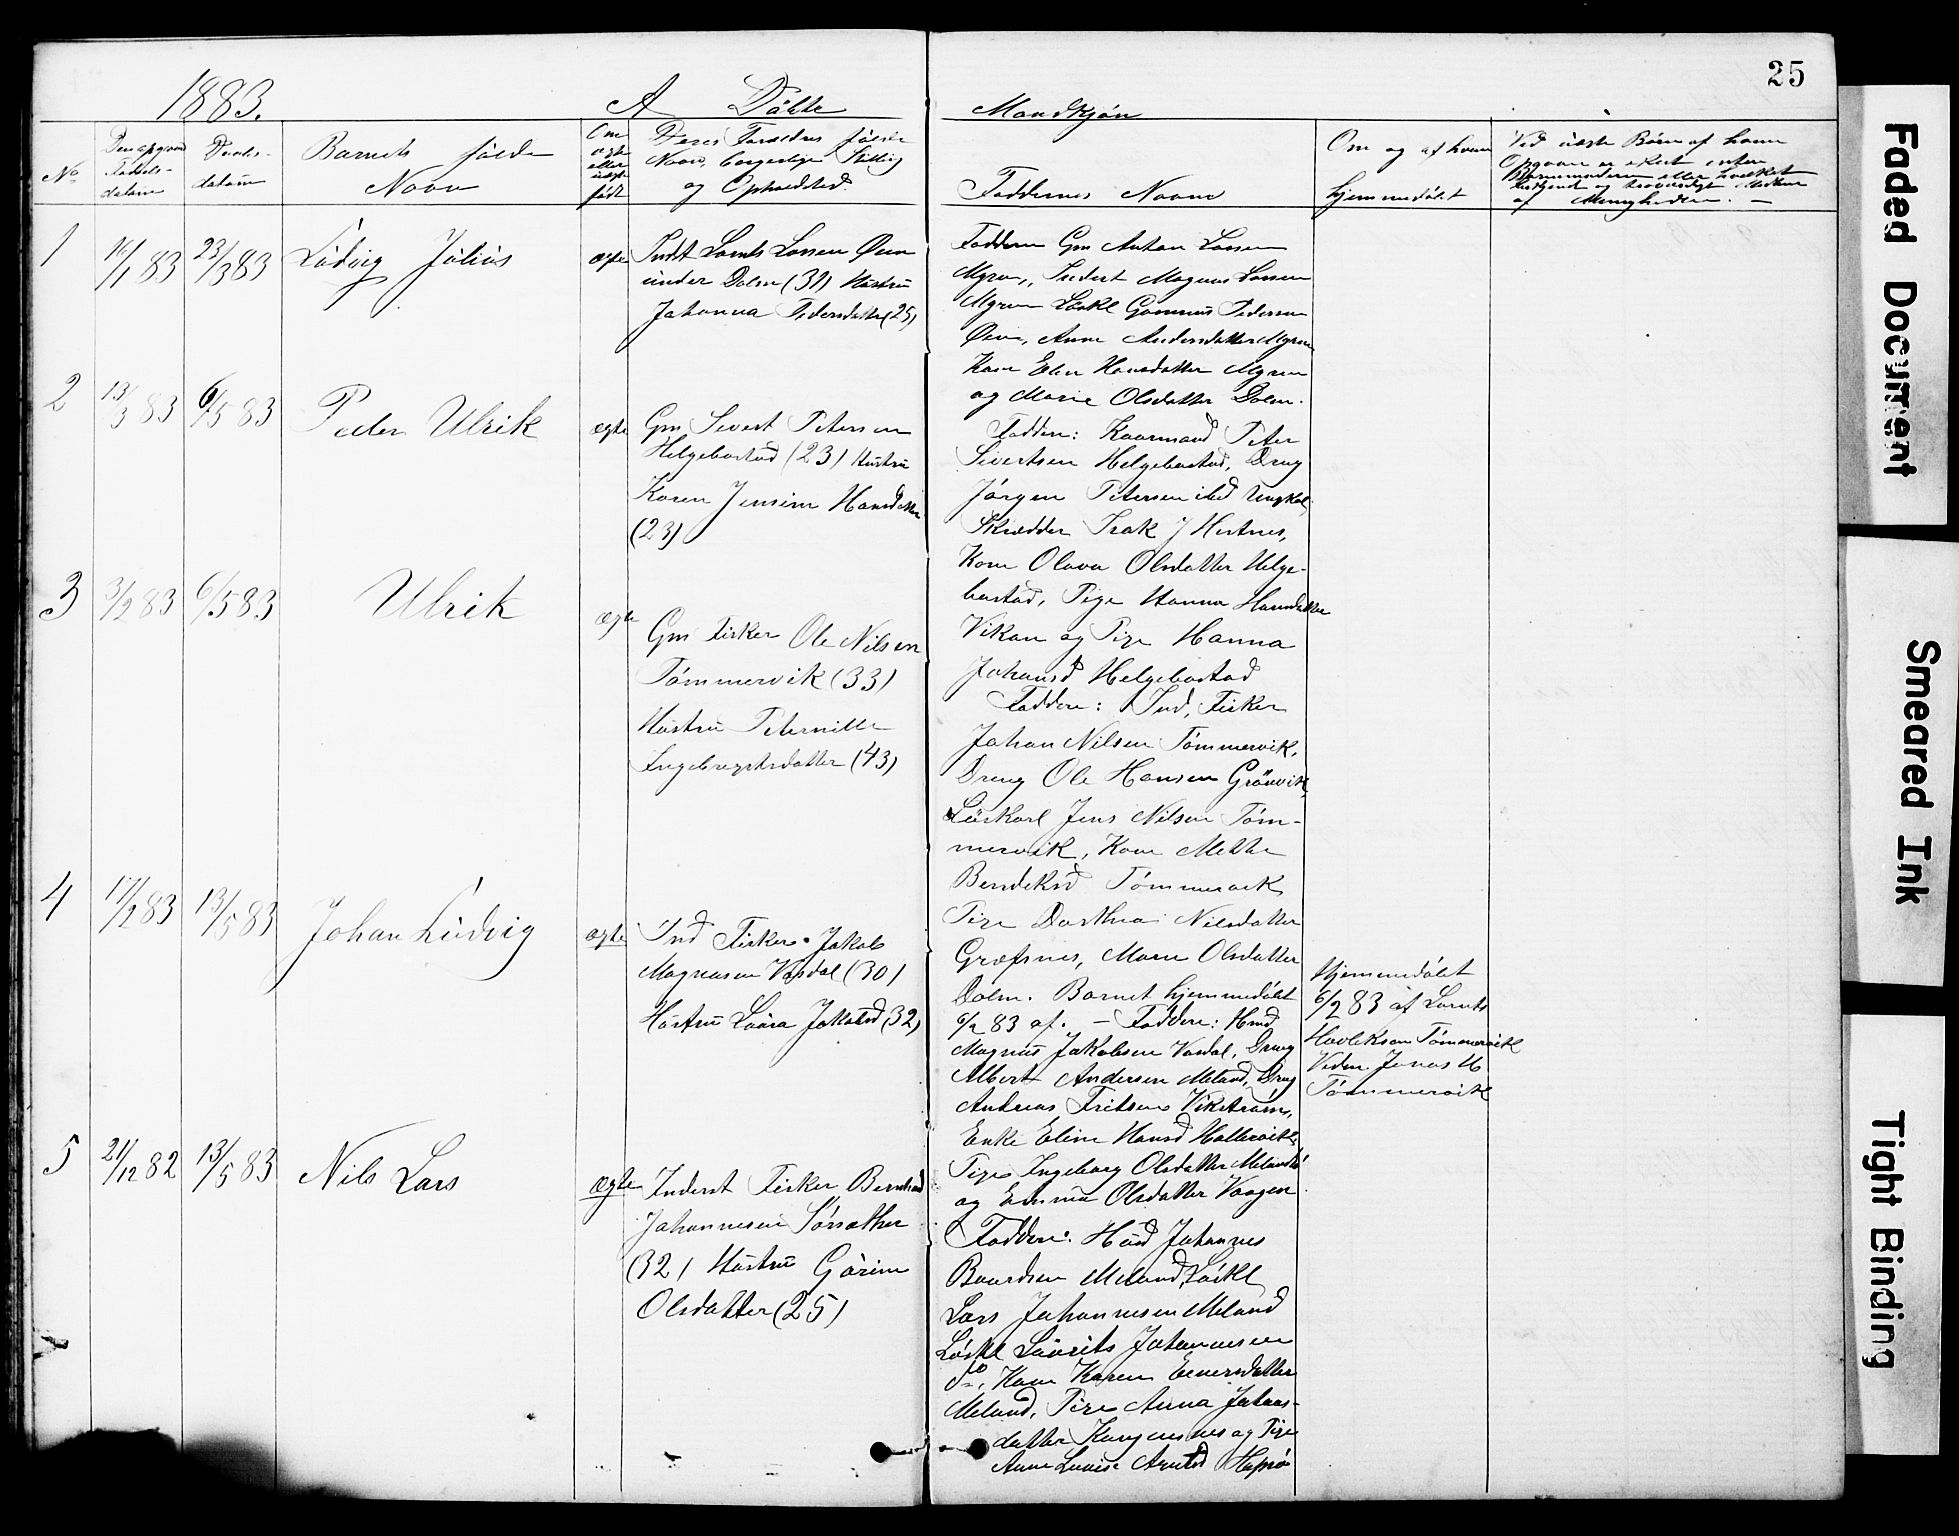 25
1883.
A Døbte
Mandkjøn
No
Den opgivne Fødselsdatum
Daabsdatum
Barnets fulde
Navn
Om ægte eller uægte født
Deres Forældres fulde
Navn, borgerlige Stilling
og Opholdsted.
Faddernes Navne
Om og af hvem
hjemmedøbt
Ved uægte Børn af hvem
Opgaven er skeet enten
Barnemoderen eller hvilket
af Menigheden. —
1
23/3 83
Ludvig Julius
ægte
Indst Lornts Larsen Øien
under Dolm (31) Hustru
Johanna Pedersdatter (25)
Faddere Gm Anton Larsen
Myren, Inderst Magnus Larsen
Myren Løskl Gommus Pedersen
Øien, Anne Andersdatter Myren
Kone Elen Hansdatter Myren
og Marie Olsdatter Dolm.
2
13/3 83
6/5 83
Peder Ulrik
ægte
Gm Sivert Petersen
Helgebostad (23) Hustru
Karen Jensine Hansdatter
(23)
Faddere: Kaarmand Peter
Sivertsen Helgebostad, Dreng
Jørgen Petersen ibid Ungkal,
Skrædder Isak J Hestnes,
Kone Olava Olsdatter Helge-
bostad, Pige Hanna Hansdatter
Vikan og Pige Hanna
Johansd Helgebostad
3
3/2 83
6/5 83
Ulrik
ægte
Gm Fisker Ole Nilsen
Tømmervik (33)
Hustru Peternille
Ingebrigtsdatter (43)
Faddere: Ind, Fisker
Johan Nilsen Tømmervik,
Dreng Ole Hansen Grønvik,
Løskarl Jens Nilsen Tøm-
mervik, Kone Mette
Bendeksd Tømmervik
Pige Dorthea Nilsdatter
Græfsnes, Maren Olsdatter
Dolm. Barnet hjemmedøbt
6/2 83 af. — Faddere: Hmd
Hjemmedøbt
6/2 83 af Lornts
Havleksen Tømmervik
Vidne Jonas
Tømmervik
4
17/2 83
13/5 83
Johan Ludvig
ægte
Ind Fisker Jakob
Magnusen Vasdal (30)
Hustru Laura Jakobsd (32)
Magnus Jakobsen Vasdal, Dreng
Albert Andersen Meland, Dreng
Andreas Fritsen Vikstrøm,
Enke Eline Hansd Hallervik,
Pige Ingeborg Olsdatter Meland
og Emma Olsdatter Vaagen
5
21/12 82
13/5 83
Nils Lars
ægte
Inderst Fisker Bernhard
Johannesen Sørsæther
(32) Hustru Gurine
Olsdatter (25)
Faddere: Husmd Johannes
Baardsen Meland, Løskl
Lars Johannesen Meland
Løskl Laurits Johannesen
do, Kone Karen Einersdatter
Meland, Pige Anna Johans-
datter og Pige
Anne Lovise Arntsd Hapnø
Faded Document
Smeared Ink
Tight Binding